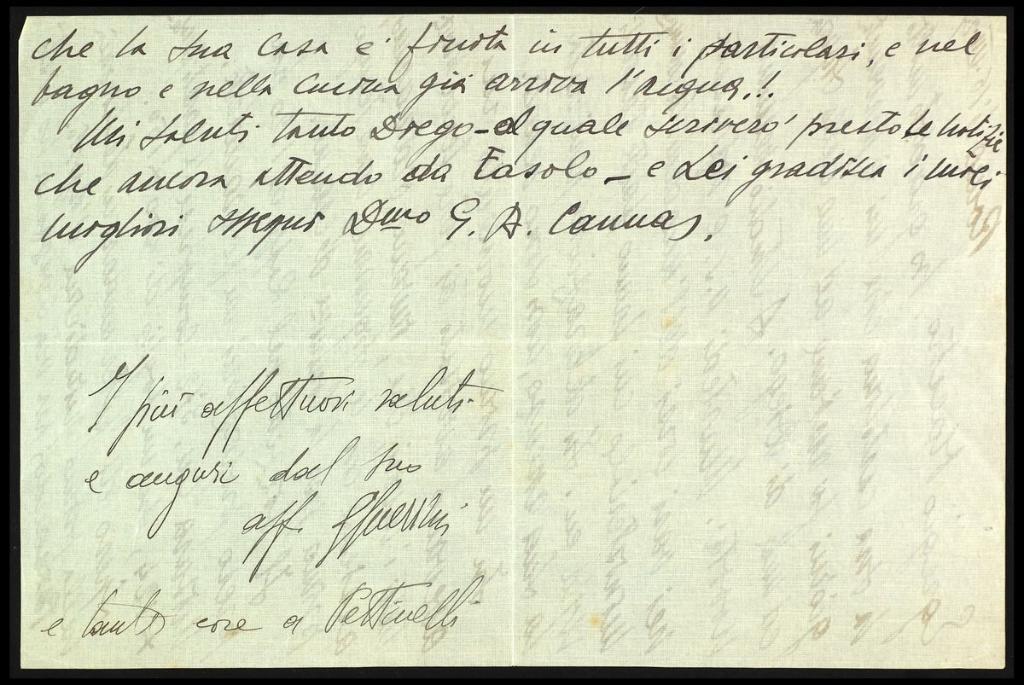 che la sua casa e' finita in tutti i particolari, e nel
bagno e nella cucina già arriva l'acqua!!
Mi saluti tanto Diego - al quale scriverò presto le notizie
che ancora attendo da Fasolo - e Lei gradisca i miei
migliori ossequi Dmo G. A. Cannas.
I più affettuosi saluti
e auguri dal suo
aff. GGuerrini
e tante cose a Pettinelli